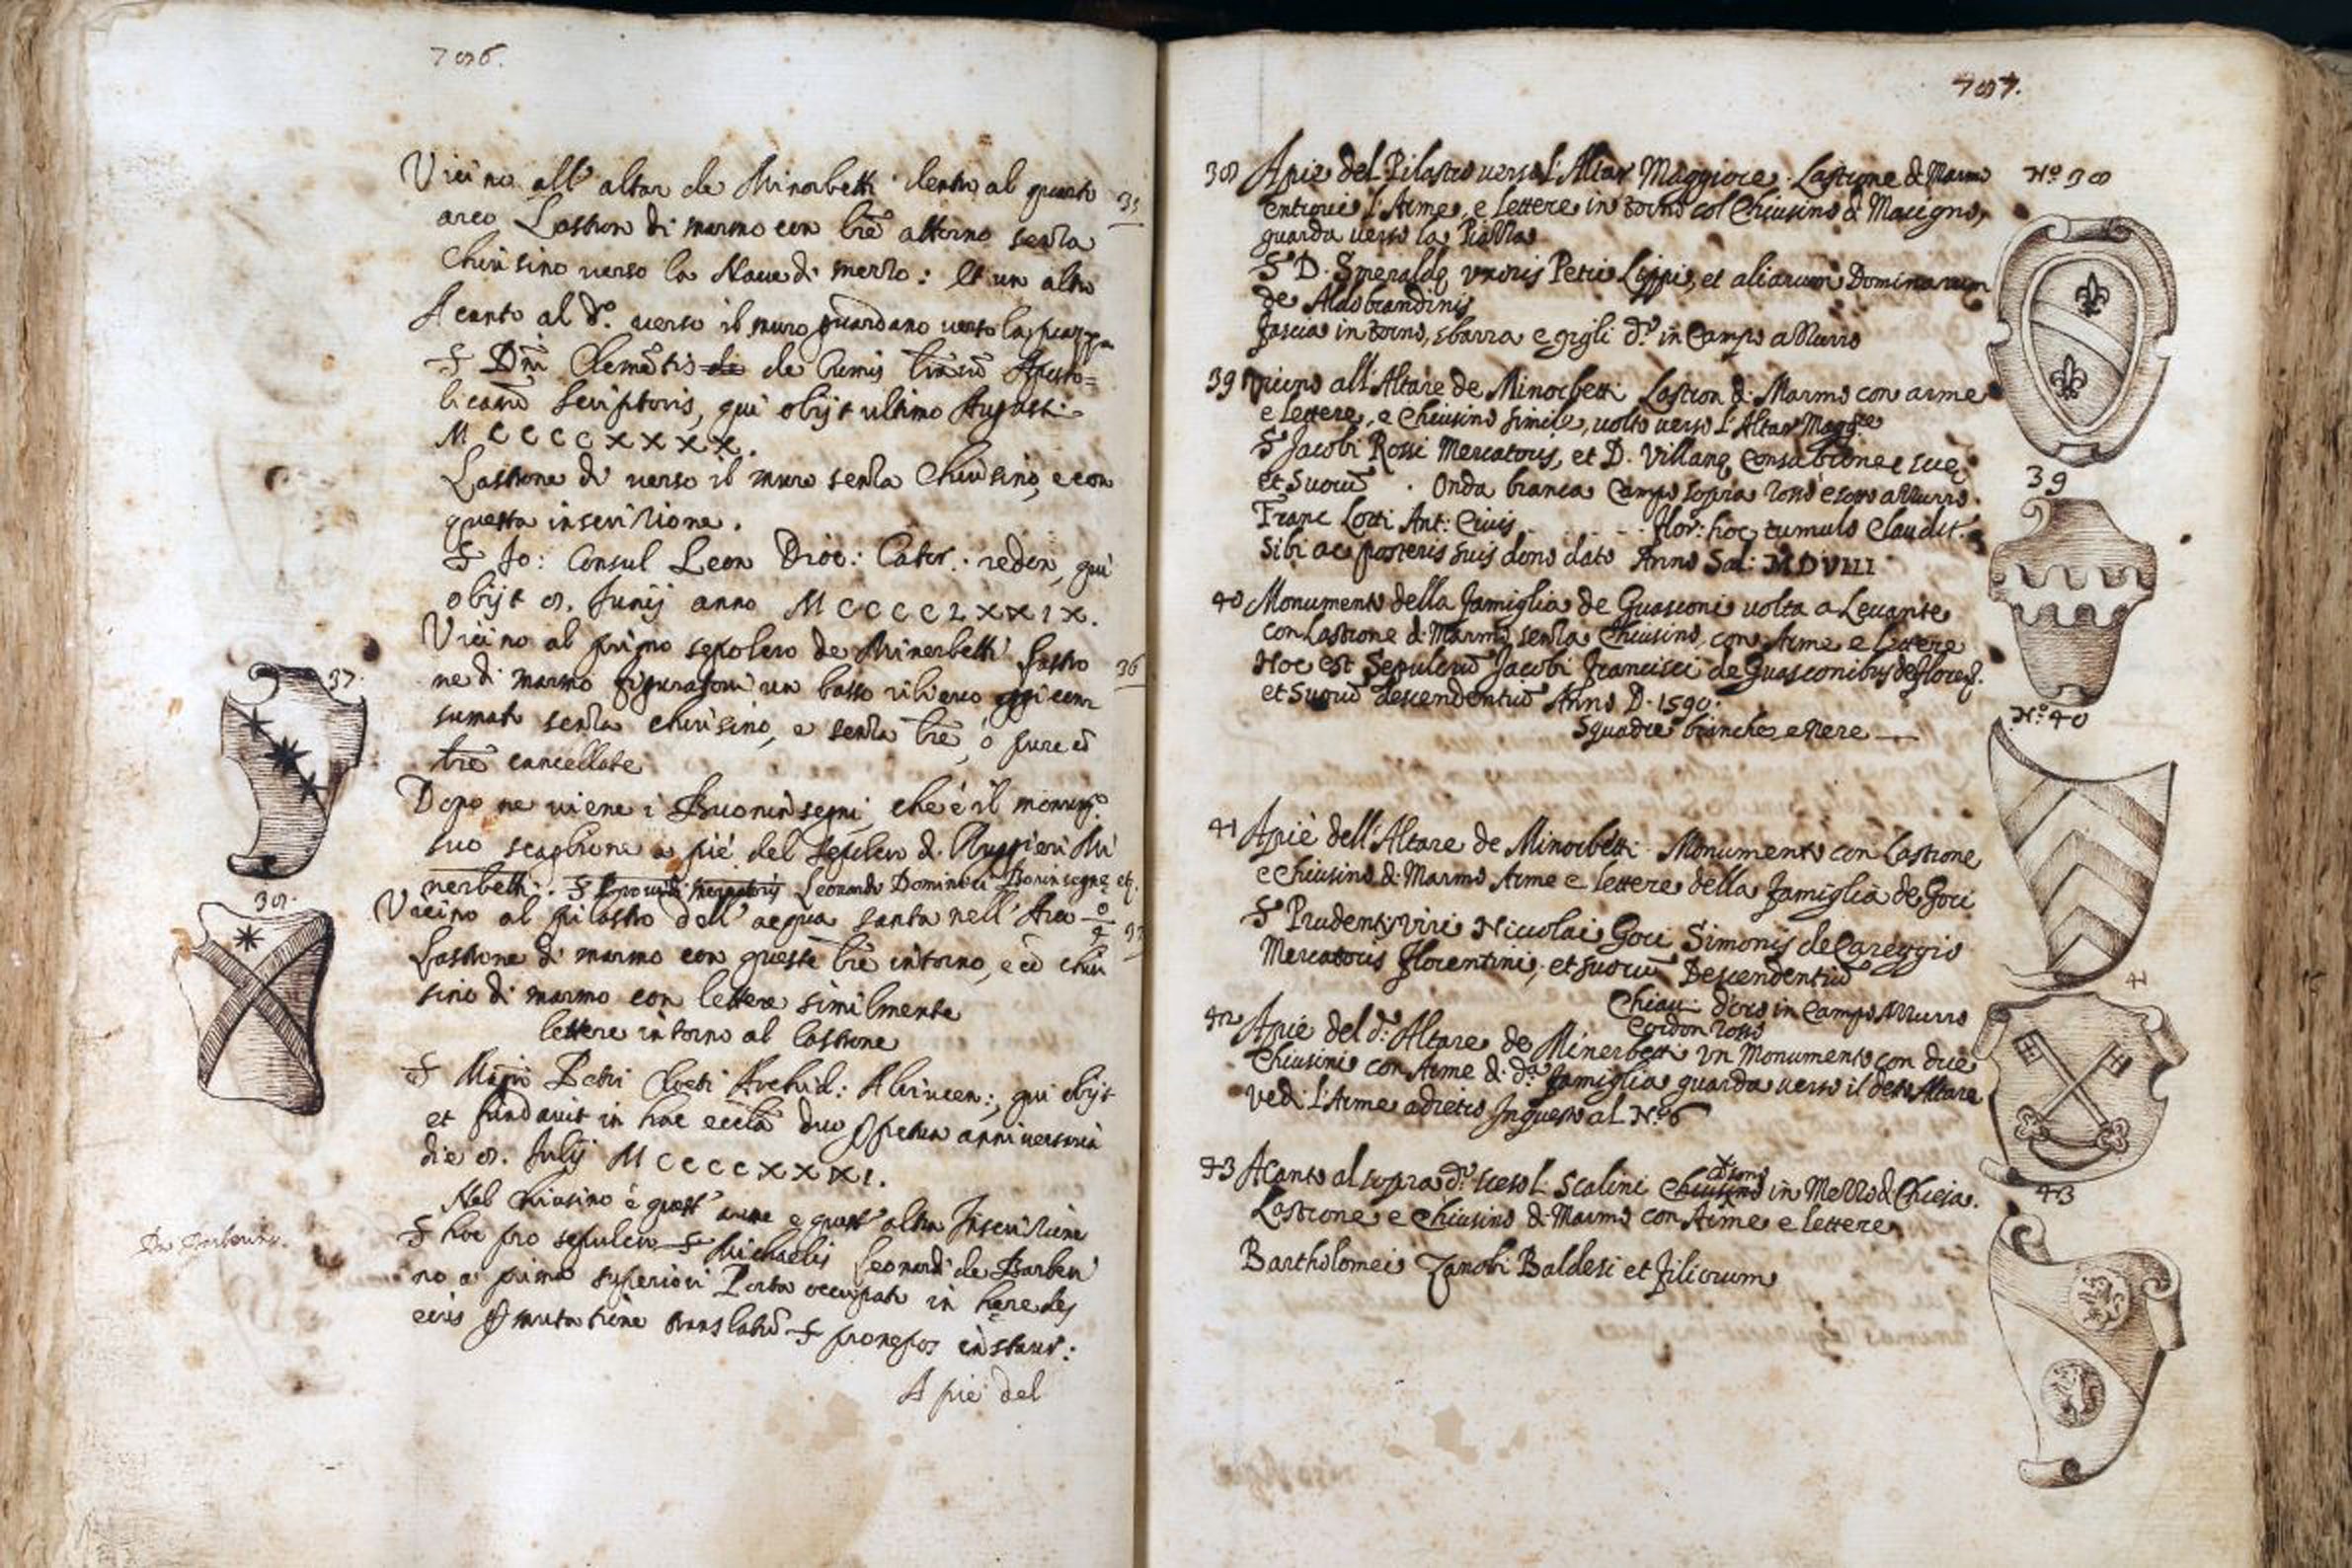 786.
Vicino all' altar de Minorbetti dentro al quarto 35
arco Lastron di marmo con lre attorno senza
Chiusino verso la Naue di mezzo: Et un altro
Acanto al d.º verso il muro guardano verso la piazza
S Dni Clemētis de de
licarū scriptoris, qui obijt ultimo Augusti
M CCCC XXXX.
Lastrone di verso il muro senza Chiusino, e con
questa inscrizione.
S Jo: Consul Leon Dioc: redon, qui
obijt 8. Junij anno M CCCC LXXIX.
Vicino al primo sepolcro de Minerbetti lastro 36
ne di marmo un basso rilieuo con
sumato senza chiusino, e senza lre, ò pure cō
lre cancellate
Dopo ne viene i Buoninsegni, che è il
suo scaglione a piè del sepolcro di Ruggieri Mi
nerbetti. S Leonardi Dominici Boninsegne etc.
Vicino al pilastro dell' acqua santa nell' Arca
Lastrone di marmo con queste lre intorno, e cō chiu
sino di marmo con lettere similmente
lettere intorno al lastrone
S Petri Archid: qui obijt
et fundauit in hac eccla duo anniversaria
die 8. Julij M CCCC XXXI.
Nel Chiusino è quest' arme e quest' altra Inscrizione
S hoc pro sepulcro S Michaelis Leonardi de Barberi
no a primo superiori Porta occupato in heredes
eius translatū S pronepos instaur:
A piè del
37.
38.
787.
38 Apie del Pilastro verso l'Altar Maggiore. Lastrone di Marmo Nº 38
entroui l'Arme, e Lettere intorno col Chiusino di Macigno,
guarda verso la Piazza
S D. Smeralde vxoris Petri Lippi, et aliarum Dominarum
de Aldobrandinis
fascia intorno, sbarra e gigli d.º in Campo azzurro
39 Vicino all'Altare de Minorbetti Lastron di Marmo con arme
e Lettere, e Chiusino simile, volto verso l'Altar Magg.re
S Jacobi Rossi Mercatoris, et D. Villane Consubrione sue 39
et Suorū. Onda bianca Campo sopra rosso e sotto azzurro.
Franc Lotti Ant: Ciuis . . . . . flor: hoc tumulo Claudit.
Sibi ac posteris suis dono dato Anno Sal: MDVIII
40 Monumento della famiglia de Guasconi volta a Leuante
con Lastrone di Marmo senza Chiusino, con Arme e Lettere
Hoc est Sepulcrū Jacobi Francisci de Guasconibus de floren.
et Suorū descendentiū Anno D. 1590.
Squadre bianche, e Nere Nº 40
41 Apiè dell'Altare de Minorbetti Monumento con Lastrone
e Chiusino di Marmo Arme e lettere della famiglia de Goci
S Prudentis viri Niccolai Goci Simonis de Careggio
Mercatoris Florentini, et suorū Descendentiū
Chiaui d'oro in Campo Azzurro 41
Cordon rosso
42 Apiè del d.º Altare de Minerbetti vn Monumento con due
Chiusini con Arme di d.ª famiglia guarda verso il detto Altare
vedi l'Arme adietro In questo al Nº 6
43 Acanto al sopra d.º sceso l Scalini Chiusino in Mezzo di Chiesa. 43
Lastrone e Chiusino di Marmo con Arme e lettere
Bartholomei Zanobi Baldesi et filiorum